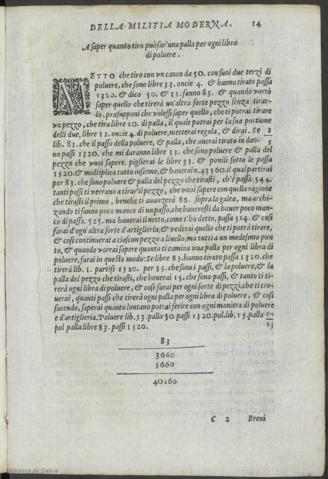 DELLA MILITIA MODERNA. 14
A saper quanto tiro può far una palla per ogni libra
di poluere.
METTO che tiro con vn canon da 50. con suoi due terzi di
poluere, che sono libre 33. oncie 4. & hanno tirato passa
1320. & dico 50. & 33. fanno 83. & quando vorrò
saper quello che tirerà un'altra sorte pezzo senza tirar-
lo, presupponi che volessi saper quello, che ti potrai tirare
vn pezzo, che tira libre 20. di palla, il quale potrai per la sua portione
delli due, libre 12. oncie 4. di poluere, metterai regola, & dirai. Se
lib. 83. che il passo della poluere, & pala, che auerai tirato in dan-
no passi 1320. che mi daranno libre 33. che sono poluere & palla del
pezzo che vuoi sapere. piglierai le libre 33. & ponili sotto le passa
1320. & moltiplica tutto insieme, & hauerai n. 43560. il qual partirai
per 83. che sono poluere & palla del pezzo che tirasti, ch'è passa 544.
tanti passi ti verranno a tirar'il pezzo, che vuoi sapere con quella ragione
che tirasti il primo, benche ti auanzerà 88. sopra la galea, ma archi-
zando ti fanno poco manco di un passo, che haueresti da hauer poco man-
co di passa. 525. ma hauerai il netto, come t'ho detto, passa 514. & così
farai d'ogn'altra sorte d'artiglieria, & vederai quello che ti potrà tirare,
& così continuerai a ciascun pezzo a liuello, ma tutti a un medesimo pun
to, & quando vorrai sapere quanto ti camina vna palla per ogni libra di
poluere, farai in questo modo: Se libre 83. hanno tirato passa 1320. che
tirerà lib. 1. partisi 1320. per 35. che sono i passi, & la poluere, & la
palla del pezzo che tirasti, che hauerai 15. che sono passi, & tanto ti ti-
rerà ogni libra di poluere, & così farai per ogni sorte di pezzi, che ti tro-
uerai, quanti passi che tirerà ogni palla per ogni libra di poluere, & così
facendo, saperai quanto lontano potrai ferire con ogni maniera di poluere
e d'artiglieria. Poluere lib. 33. palla 50 passi 1320. pol. lib. 13. palla
pol palla libre 83. passi 1320.
83
3660
3660
40260
C 2 Breui
Biblioteca de Galicia